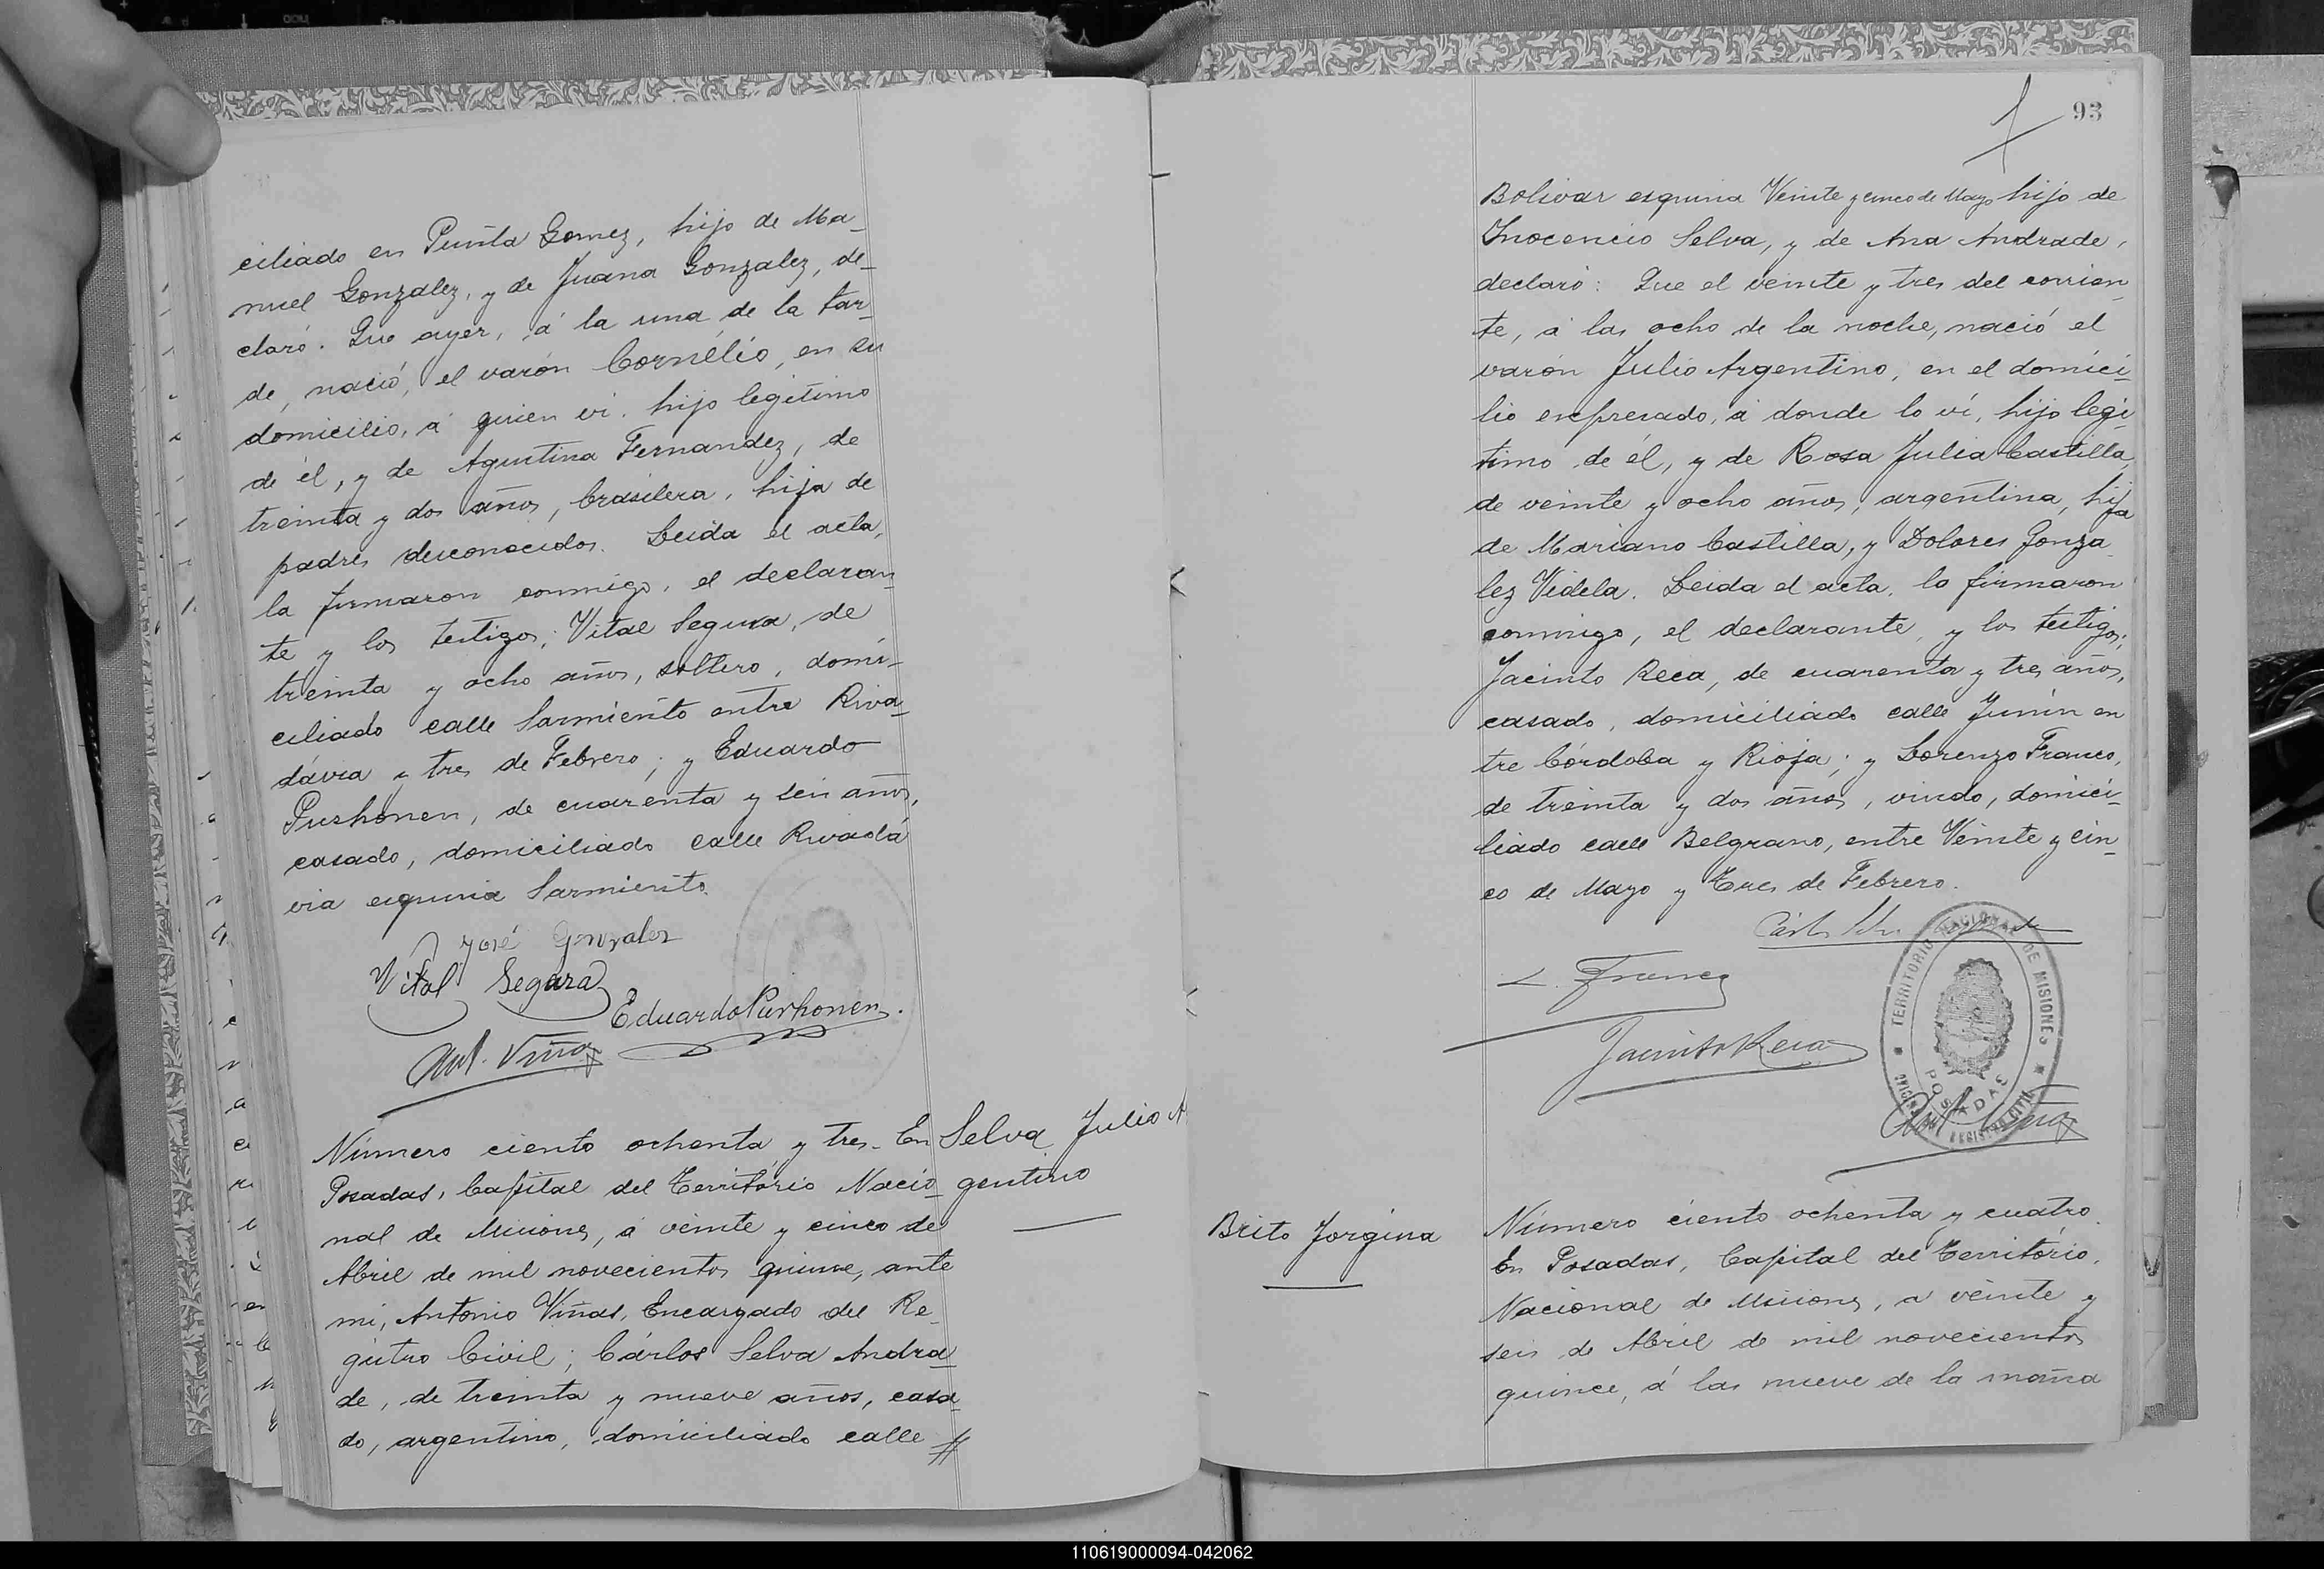 ciliado en Punta Gomez, hijo de Ma-
nuel Gonzalez, y de Juana Gonzalez, de-
claró. Que ayer, á la una de la tar-
de, nació, el varón Cornélio, en su
domicilio, á quien vi. hijo legítimo
de él, y de Agustina Fernandez, de
treinta y dos años, brasilera, hija de
padres desconocidos. Leida el acta,
la firmaron conmigo, el declaran-
te y los testigos; Vital Segura, de
treinta y ocho años, soltero, domi-
ciliado calle Sarmiento entre Riva-
dávia y tres de Febrero; y Eduardo
Purhonen, de cuarenta y seis años,
casado, domiciliado calle Rivadá
via esquina Sarmiento.
José Gonzalez
Vital Segura
Eduardo Purhonen.
Ant. Viñas
Número ciento ochenta y tres. En
Posadas, Capital del Território Nacio-
nal de Misiones, á veinte y cinco de
Abril de mil novecientos quince, ante
mi, Antonio Viñas, Encargado del Re-
gistro Civil; Cárlos Selva Andra-
de, de treinta y nueve años, casa-
do, argentino, domiciliado calle #
Selva Julio A
gentino
93
Bolivar esquina Veinte y cinco de Mayo hijo de
Inocencio Selva, y de Ana Andrade,
declaró: Que el veinte y tres del corrien-
te, á las ocho de la noche, nació el
varón Julio Argentino, en el domici-
lio expresado, á donde lo ví, hijo legi-
timo de él, y de Rosa Julia Castilla,
de veinte y ocho años, argentina, hija
de Mariano Castilla, y Dolores Gonza-
lez Videla. Leida el acta, la firmaron
conmigo, el declarante, y los testigos;
Jacinto Reca, de cuarenta y tres años,
casado, domiciliado calle Junín en
tre Córdoba y Rioja; y Lorenzo Franco,
de treinta y dos años, viudo, domici-
liado calle Belgrano, entre Veinte y cin-
co de Mayo y Tres de Febrero.
L. Franco
Jacinto Reca
TERRITORIO NACIONAL DE MISIONES
POSADAS
REGISTRO CIVIL
Ant. Viñas
Brito Jorgina
Número ciento ochenta y cuatro.
En Posadas, Capital del Território,
Nacional de Misiones, a veinte y
seis de Abril de mil novecientos
quince, á las nueve de la maña
110619000094-042062